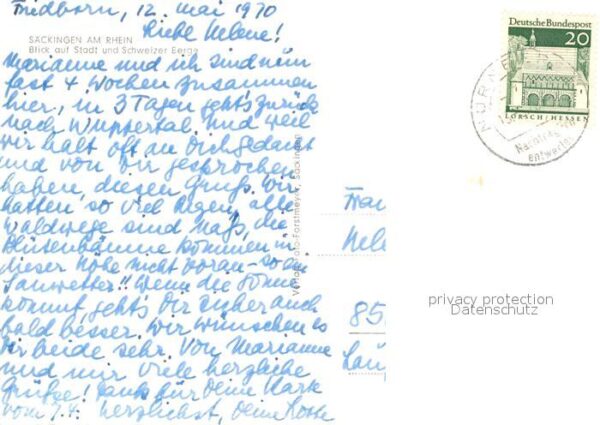 Friedborn, 12. Mai 1970
Liebe Helene!
SÄCKINGEN AM RHEIN
Blick auf Stadt und Schweizer Berge
Marianne und ich sind nun
fast 4 Wochen zusammen
hier, in 3 Tagen geht's zurück
nach Wuppertal. Und weil
wir halt oft an Dich gedacht
und von Dir gesprochen
haben, diesen Gruß. Wir
hatten so viel Regen, alle
Waldwege sind naß, die
Blütenbäume kommen in
dieser Höhe nicht voran - so ein
Sauwetter!! Wenn die Sonne
kommt, geht's Dir sicher auch
bald besser. Wir wünschen es
Dir beide sehr. Von Marianne
und mir viele herzliche
Grüße! Dank für Deine Karte
vom 7.4. Herzlichst, Deine Lotte
Verlag Foto-Forstmeyer, Säckingen
Deutsche Bundespost
20
LORSCH/HESSEN
NÜRN
Nachträg
entwertet
Frau
Hele
85
Lau
privacy protection
Datenschutz